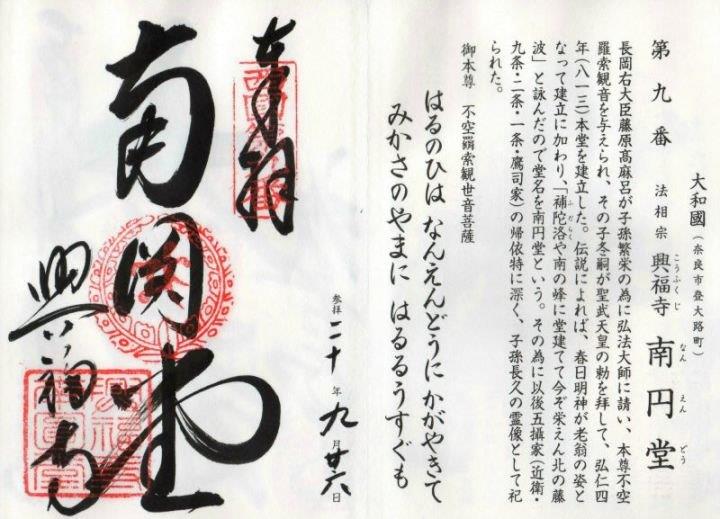 大和國(奈良市登大路町)
第九番 法相宗 興福寺 南円堂
こうふくじ なんえんどう
長岡右大臣藤原髙麻呂が子孫繁栄の為に弘法大師に請い、本尊不空
羅索観音を与えられ、その子冬嗣が聖武天皇の勅を拝して、弘仁四
年(八一三)本堂を建立した。伝説によれば、春日明神が老翁の姿と
なって建立に加わり、「補陀洛や南の峰に堂建てて今ぞ栄えん北の藤
ふだらく
波」と詠んだので堂名を南円堂という。その為に以後五攝家(近衛・
九条・二条・一条・鷹司家)の帰依特に深く、子孫長久の霊像として祀
られた。
御本尊 不空羂索観世音菩薩
はるのひは なんえんどうに かがやきて
みかさのやまに はるるうすぐも
参拝 二十年九月廿六日
奉拝
南円堂
興福寺